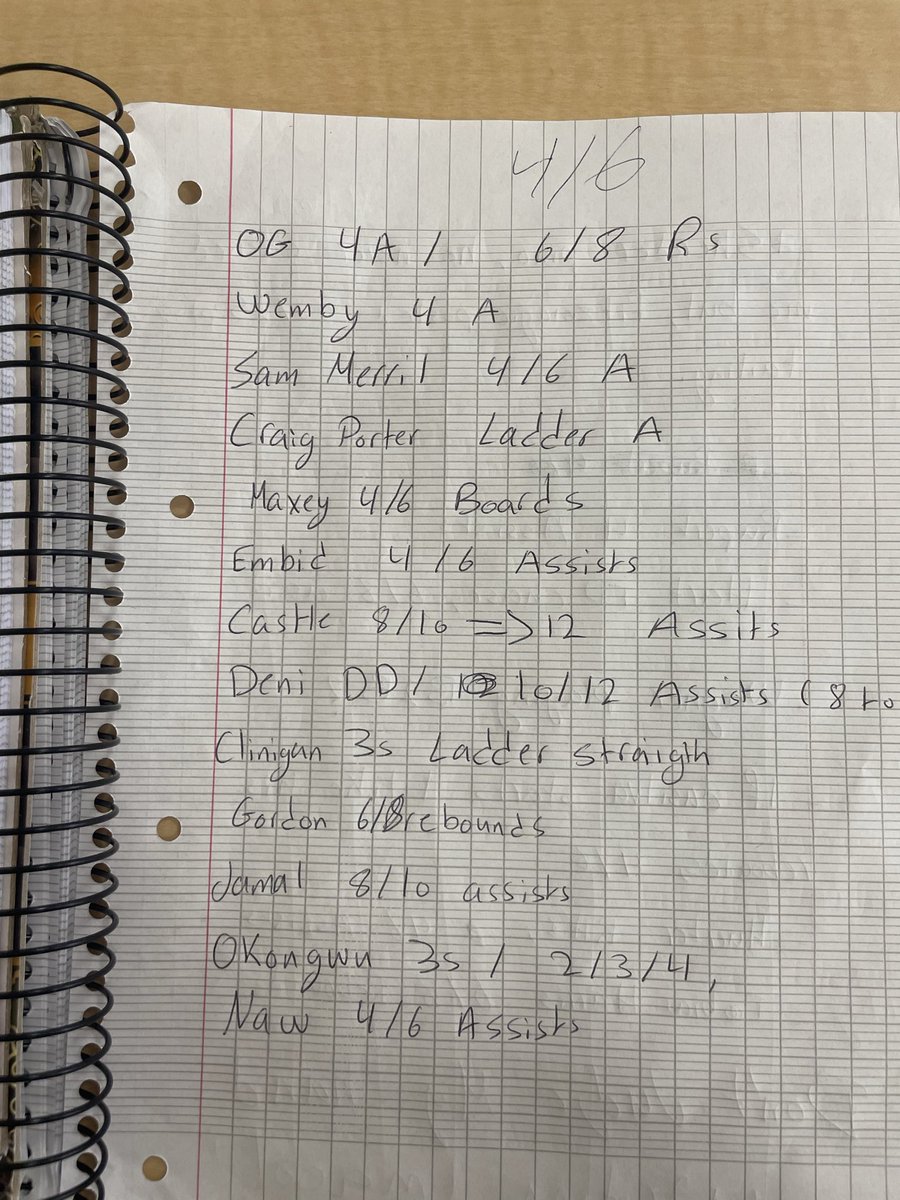 4/6
OG 4A / 6/8 Rs
Wemby 4 A
Sam Merril 4/6 A
Craig Porter Ladder A
Maxey 4/6 Boards
Embid 4/6 Assists
Castle 8/10 => 12 Assits
Deni DD / 10/12 Assists ( 8 to
Clinigan 3s Ladder straigth
Gordon 6/8 rebounds
Jamal 8/10 assists
OKongwu 3s / 2/3/4,
Naw 4/6 Assists